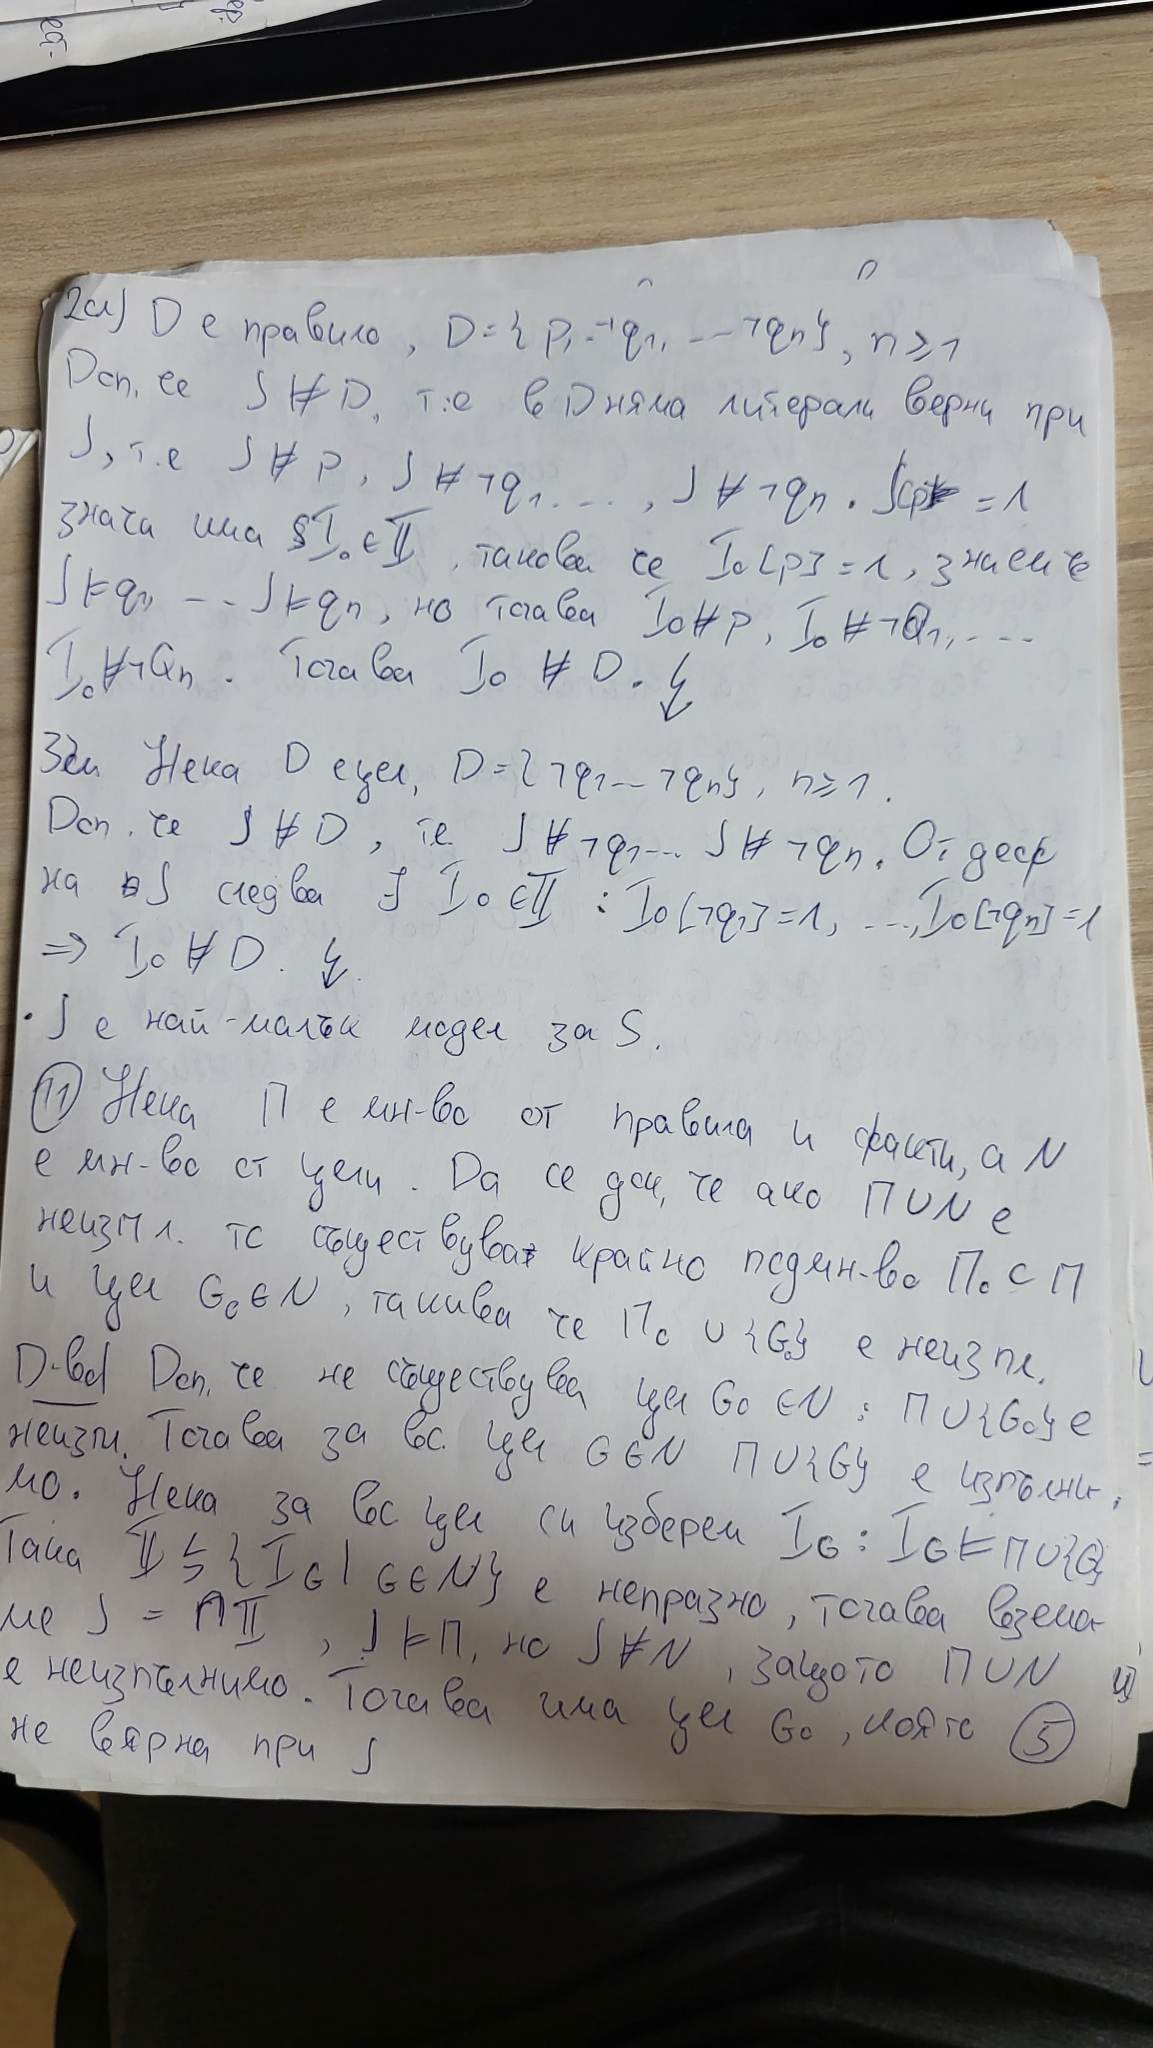 2сл) D е правило, D = { p, ¬q₁, ... ¬qₙ}, n ≥ 1
Доп. че J ⊭ D, т.е в D няма литерали верни при
J, т.е J ⊭ p, J ⊭ ¬q₁ ..., J ⊭ ¬qₙ. = 1
значи има I₀ ∈ 𝕀, такова че I₀[p] = 1, знаем че
J ⊨ q₁, ... J ⊨ qₙ, но тогава I₀ ⊭ p, I₀ ⊭ ¬Q₁, ...
I₀ ⊭ ¬Qₙ. Тогава I₀ ⊭ D. ↯
3сл Нека D е цел, D = {¬q₁ ... ¬qₙ}, n ≥ 1.
Доп. че J ⊭ D, те J ⊭ ¬q₁ ... J ⊭ ¬qₙ. От деф
на J следва ∃ I₀ ∈ 𝕀 : I₀[¬q₁] = 1, ..., I₀[¬qₙ] = 1
⇒ I₀ ⊭ D. ↯
· J е най-малък модел за S.
⑪ Нека Π е мн-во от правила и факти, а N
е мн-во от цели. Да се док, че ако Π ∪ N е
неизпл. то съществуват крайно подмн-во Π₀ ⊂ Π
и цел G₀ ∈ N, такива че Π₀ ∪ {G₀} е неизпл.
Д-во| Доп. че не съществува цел G₀ ∈ N : Π ∪ {G₀} е
неизпл. Тогава за вс. цел G ∈ N Π ∪ {G} е изпълни-
мо. Нека за вс цел си изберем I_G : I_G ⊨ Π ∪ {G}
Така 𝕀 ≒ { I_G | G ∈ N} е непразно, тогава взема-
ме J = ⋂𝕀, J ⊨ Π, но J ⊭ N, защото Π ∪ N
е неизпълнимо. Тогава има цел G₀, която
не вярна при J
⑤